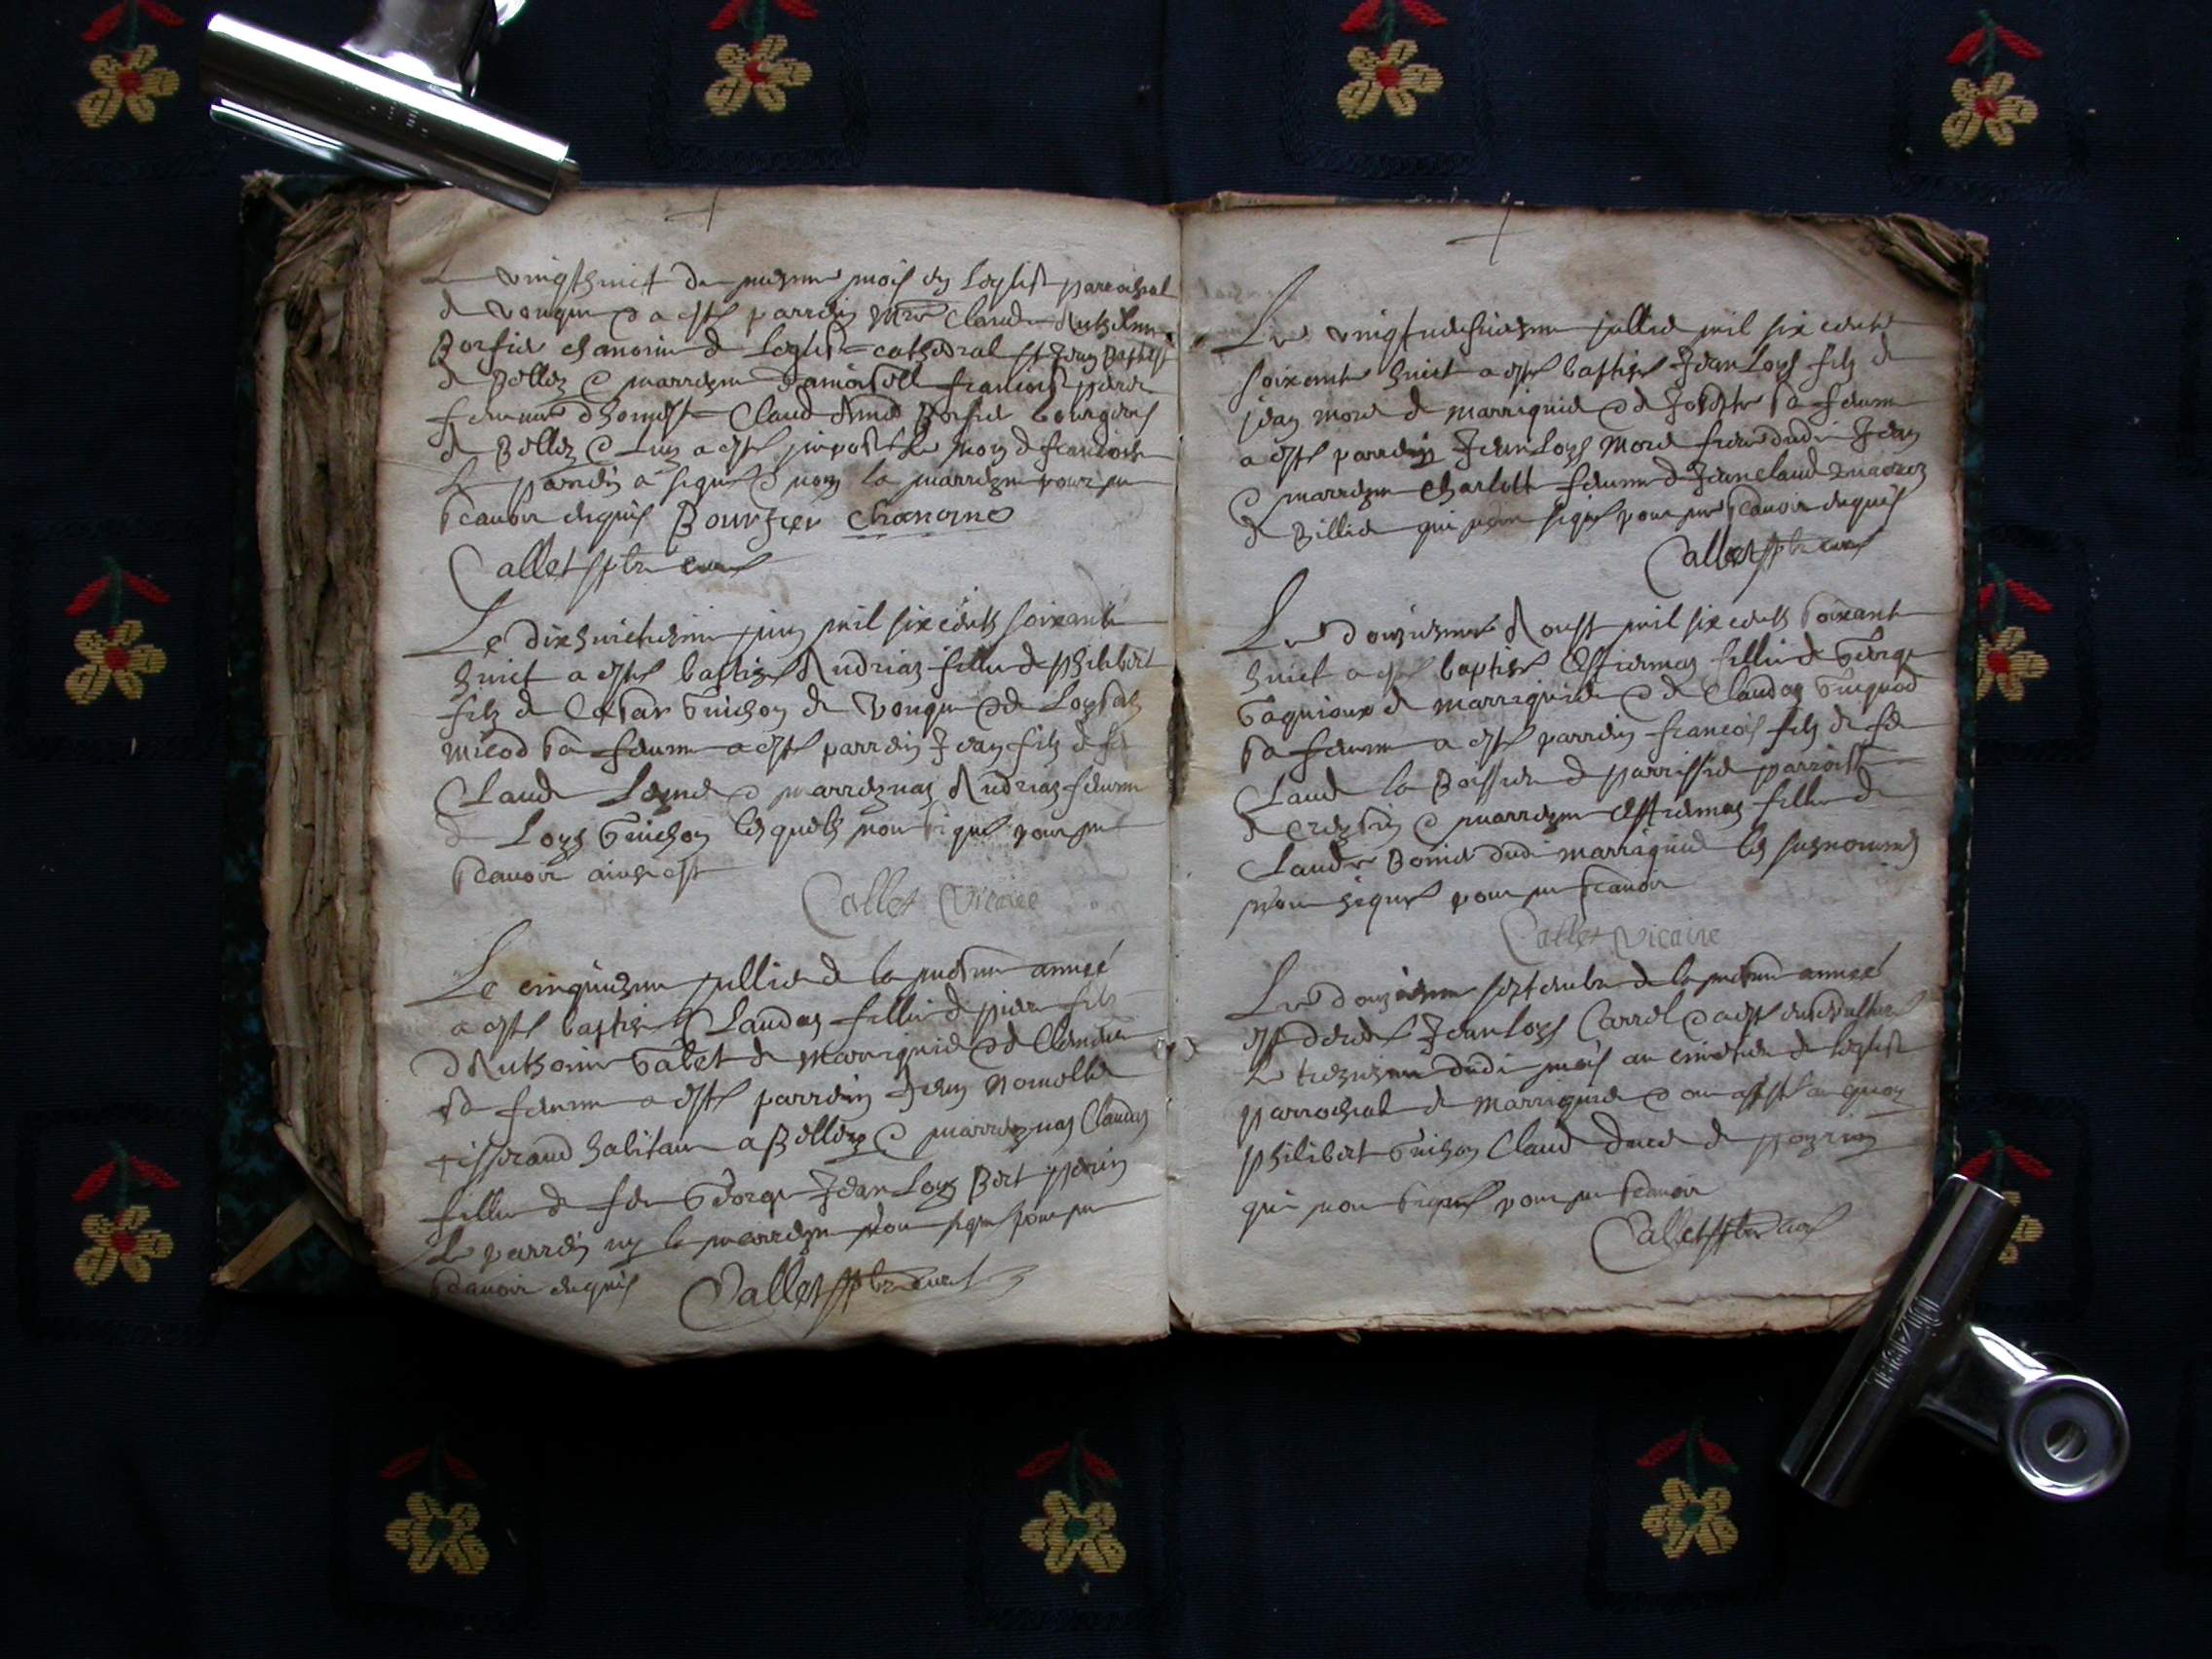 vingthuict du mesme mois en leglise parrochial
de Vongne & a esté parrein Mre Claude Anthelme
Borsier chanoine de leglise cathedral St Jean Baptist
de Belley & marreyne damoisell francoise
femme dhonneste Claud Borsier bourgeois
de Belley & luy a esté imposé le nom de francoise
le parrein a signé & non la marreyne pour ne
scavoir enquis Bourssier chanoine
Callet ptre curé
Le dixhuictiesme juin mil six cents soixante
huict a esté baptisé Andriaz fillie de philibert
filz de Cæsar Guichon de Vongne & de Loysaz
Micod sa femme a esté parrein Jean filz de fe
Claude & marreynaz Andriaz femme
de Loys Guichon lesquels nont signé pour ne
scavoir ainsi est
Callet Vicaire
Le cinquiesme jullie de la mesme année
a esté baptisé Claudaz fillie de piere filz
dAnthoine Gabet de Marrignie & de Claudine
sa femme a esté parrein Jean
tisserand habitant a Belley & marreynaz Claudaz
fillie de feu George Jean Loys Bert perin
le parrein ny la marreyne nont signé pour ne
scavoir enquis Callet ptre curé
Le vingtneufuiesme jullie mil six cents
soixante huict a esté baptisé Jean Loys filz de
jean More de Marrignie & de sa femme
a esté parrein Jean Loys More frere dudi Jean
& marreyne Charlotte femme de Jean Claude
de Billie qui nont signé pour ne scavoir enquis
Callet ptre curé
Le douziesme Aoust mil six cents soixante
huict a esté baptisé Estiennaz fillie de George
Gagnioux de Marrignie & de Claudaz
sa femme a esté parrein francois filz de fe
Claude la Boissiere de parrissie parroisse
de Creyssin & marreyne Estiennaz fillie de
Claude Bonie dudi Marrignie les susnommés
nont signé pour ne scavoir
Callet Vicaire
Le douziesme septembre de la mesme année
est decedé Jean Loys Carrel & a esté ensepulturé
le treziesme dudi mois au cimetiere de leglise
parrochial de Marrignie & ont assisté
philibert Guichon Claud de peyrieu
qui nont signé pour ne scavoir
Callet ptre curé